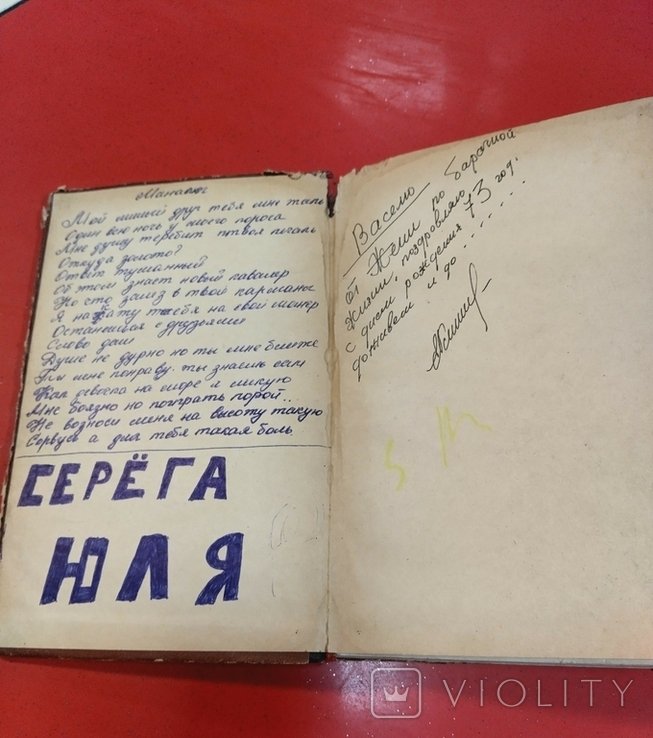 Мой милый друг тебя мне жаль
Один всю ночь у моего порога
Мне душу теребит твоя печаль
Откуда золото?
Ответ туманный
Об этом знает новый кавалер
Но кто залез в твой карман
Я на хату тебя на свой манер
Останешься с друзьями
Слово дам
Душе не дурно но ты мне ближе
Ты мне понраву. ты знаешь сам
Как девочка на море я
Мне боязно но порой..
Не возноси меня на высоту такую
а для тебя такая боль.
СЕРЁГА
ЮЛЯ
Васеню
от Жени по барачной
жизни, поздравляю
с днем рождения 73 год.
доживем и до .......
VIOLITY